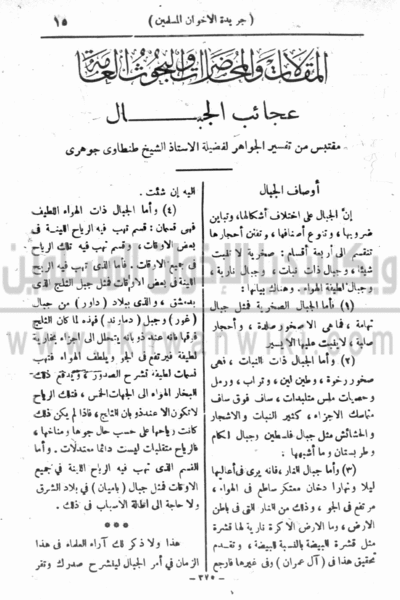 ١٥
( جريدة الاخوان المسلمين )
المقالات والمحاضرات والبحوث العامة
عجائب الجبال
مقتبس من تفسير الجواهر لفضيلة الاستاذ الشيخ طنطاوى جوهرى
أوصاف الجبال
إن الجبال على اختلاف أشكالها، وتباين
ضروبها، وتنوع أصنافها، وتفنن أحجارها
تنقسم الى أربعة أقسام: صخرية لا تنبت
شيئا، وجبال ذات نبات، وجبال نارية،
وجبال لطيفة الهواء. وهناك بيانها:
(١) فأما الجبال الصخرية فمثل جبال
تهامة، فما هى الا صخور صلدة، وأحجار
صلبة، لا ينبت عليها الا يسير
(٢) وأما الجبال ذات النبات، فهى
صخور رخوة، وطين لين، وتراب، ورمل
وحصيات ملس متلبدات، ساف فوق ساف
متماسك الاجزاء، كثير النبات والاشجار
والحشائش مثل جبال فلسطين وجبال لكام
وطبرستان وما أشبهها
(٣) وأما جبال النار، فانه يرى فى أعاليها
ليلا ونهارا دخان معتكر ساطع فى الهواء،
مرتفع فى الجو، وذلك من النار التى فى باطن
الارض، وما الارض الا كرة نارية لها قشرة
مثل قشرة البيضة بالنسبة للبيضة، وتقدم
تحقيق هذا فى (آل عمران) وفى غيرها فارجع
اليه إن شئت.
(٤) وأما الجبال ذات الهواء اللطيف
فهى قسمان: قسم تهب فيه الرياح اللينة فى
بعض الاوقات، وقسم تهب فيه تلك الرياح
فى جميع الاوقات. فأما الذى تهب فيه الرياح
اللينة فى بعض الاوقات فمثل جبل الثلج الذى
بدمشق، والذى ببلاد (داور) من جبال
(غور) وجبل (دماوند) فهذه لما كان الثلج
فوقها فانه عند ذوبانه يتحلل الى أجزاء بخارية
لطيفة فيرتفع فى الجو ويلطف الهواء، فتهب
نسمات لطيفة، فتشرح الصدور، ويدفع ذلك
البخار الهواء الى الجهات الخمس، فتلك الرياح
لا تكون الا عند ذوبان الثلج، فاذا لم يكن ذلك
كانت رياحها على حسب حال جوها ومناخها،
فالرياح متقلبات ليست دائما معتدلات. وأما
القسم الذى تهب فيه الرياح اللينة فى جميع
الاوقات فمثل جبال (باميان) فى بلاد الشرق
ولا حاجة الى اطالة الاسباب فى ذلك.
***
هذا ولا ذكر لك آراء العلماء فى هذا
الزمان فى أمر الجبال لينشرح صدرك وتقر
— ٣٧٥ —